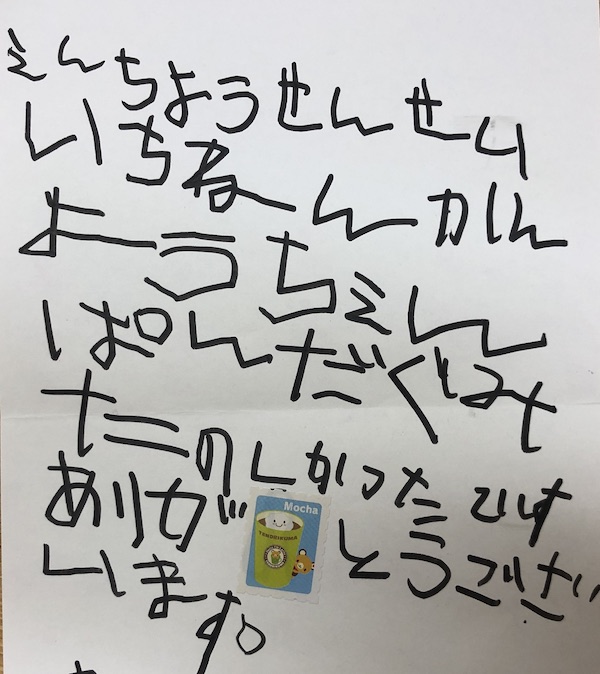 えんちようせんせい
いちねんかん
ようちえん
ぱんだぐみ
たのしかつたです
ありがとうござい
います。
Mocha
TENORIKUMA